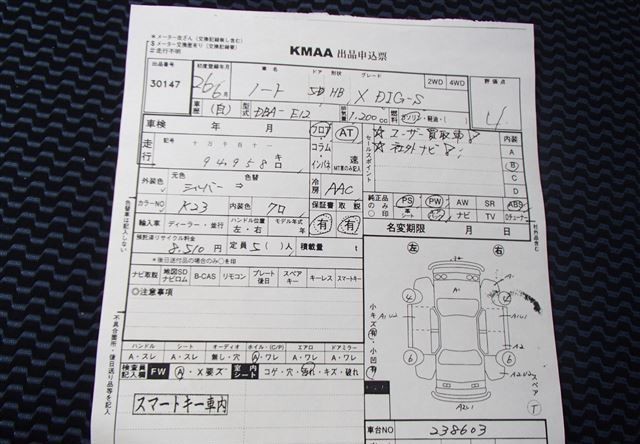 ＊メーター改ざん（交換記録無し含む）
＄メーター交換歴有り（交換記録要）
＃走行不明
KMAA 出品申込票
出品番号 初度登録年月 車名 ドア 形状 グレード 2WD 4WD 評価点
30147 26 6月 ノート 5D HB X DIG-S 4
車歴 (自) 型式 DBA-E12 排気量 1,200cc 燃料 ガソリン・軽油・( )
車検 年 月 フロア AT ☆ユーザー買取車! 内装
走行 記号 十万千百十一 94958 キロ コラム インパネ 速 MT車のみ記入 セールスポイント ☆社外ナビ! A B C D
外装色 元色 シルバー ⇒ 色替 冷房 AAC
カラーNO K23 内装色 クロ 保証書 取説 純正品のみ○印 PS PW AW SR ABS
革シート ナビ TV
輸入車 ディーラー・並行 ハンドル位置 左・右 モデル年式 年 有 有 名変期限 月 日
預託済リサイクル料金 8,510円 定員 5( )人 積載量 t 左 右
＊後日送付品の場合のみ○を印
ナビ取説 地図SDナビロム B-CAS リモコン プレート後日 スペアキー キーレス スマートキー
◎注意事項
ハンドル シート オーディオ ホイル・(C/P) エアロ ドアミラー
A・スレ A・スレ 無し・穴 A・ワレ A・ワレ A・ワレ
検査員記入欄 FW A・X要ズ 室内シート コゲ・穴・汚れ・キズ・破れ
スマートキー車内
色替車は記入しない
不具合箇所・後日送り品等を記入
社外品含む
小キズ有 小凹有
スペア T
車台NO 238603